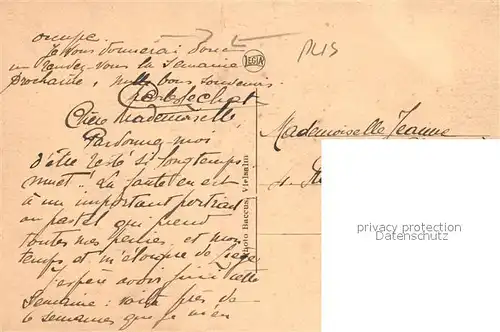 occupe.
Je vous donnerai donc
un rendez-vous la semaine
prochaine, mille bons souvenirs
Chère Mademoiselle,
Pardonnez-moi
d'être resté si longtemps
muet! La faute en est
à un important portrait
au pastel qui prend
toutes mes peines et mon
temps et m'éloigne de Liège.
J'espère avoir fini cette
semaine: voilà près de
6 semaines que je m'en
LEGIA
Photo Baccus, Vielsalm
Mademoiselle Jeanne
privacy protection
Datenschutz